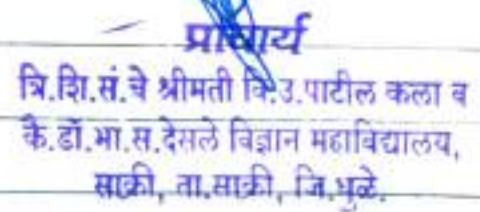 प्राचार्य
त्रि.शि.सं.चे श्रीमती वि.उ.पाटील कला व
कै.डॉ.भा.स.देसले विज्ञान महाविद्यालय,
साक्री, ता.साक्री, जि.धुळे.